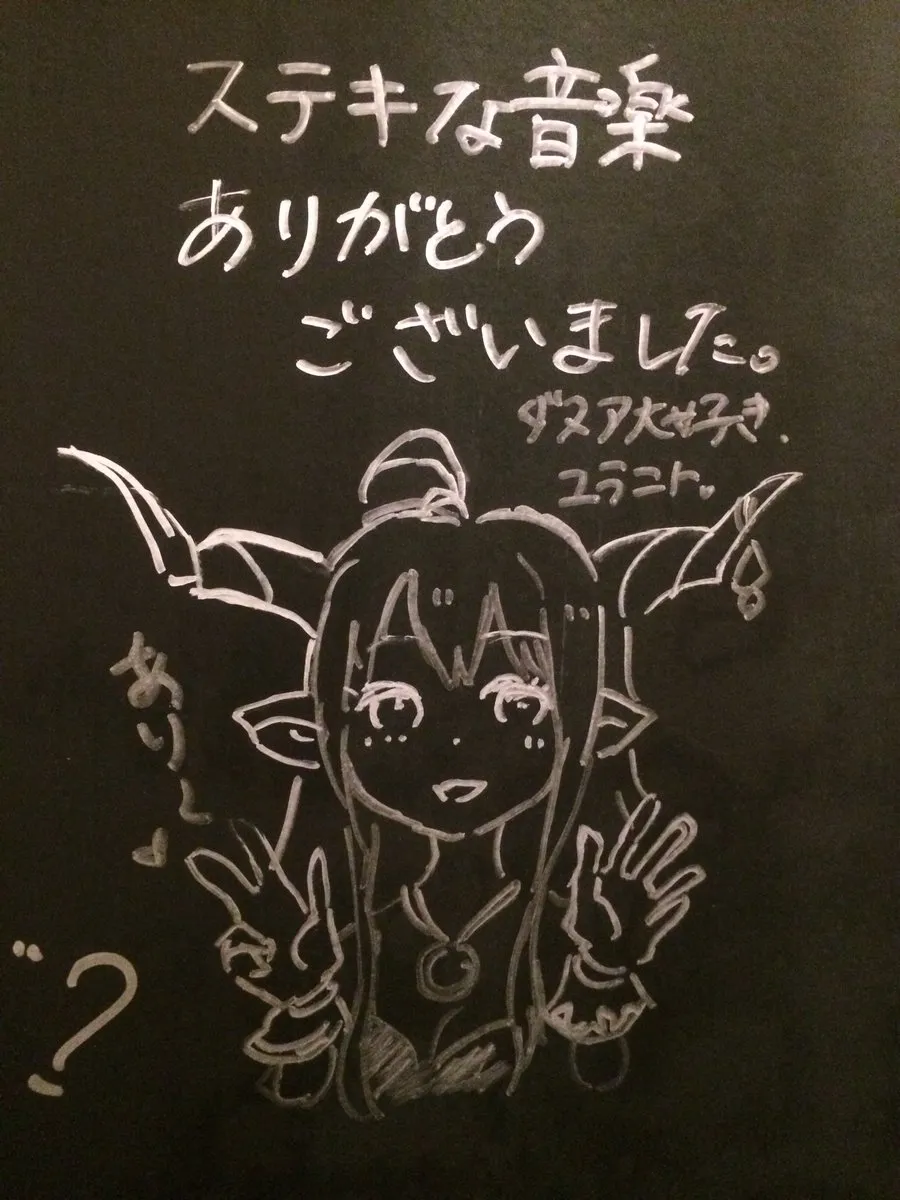 ステキな音楽
ありがとう
ございました。
ダヌア大好き.
ユラニト♥
あり〜♥
〃?